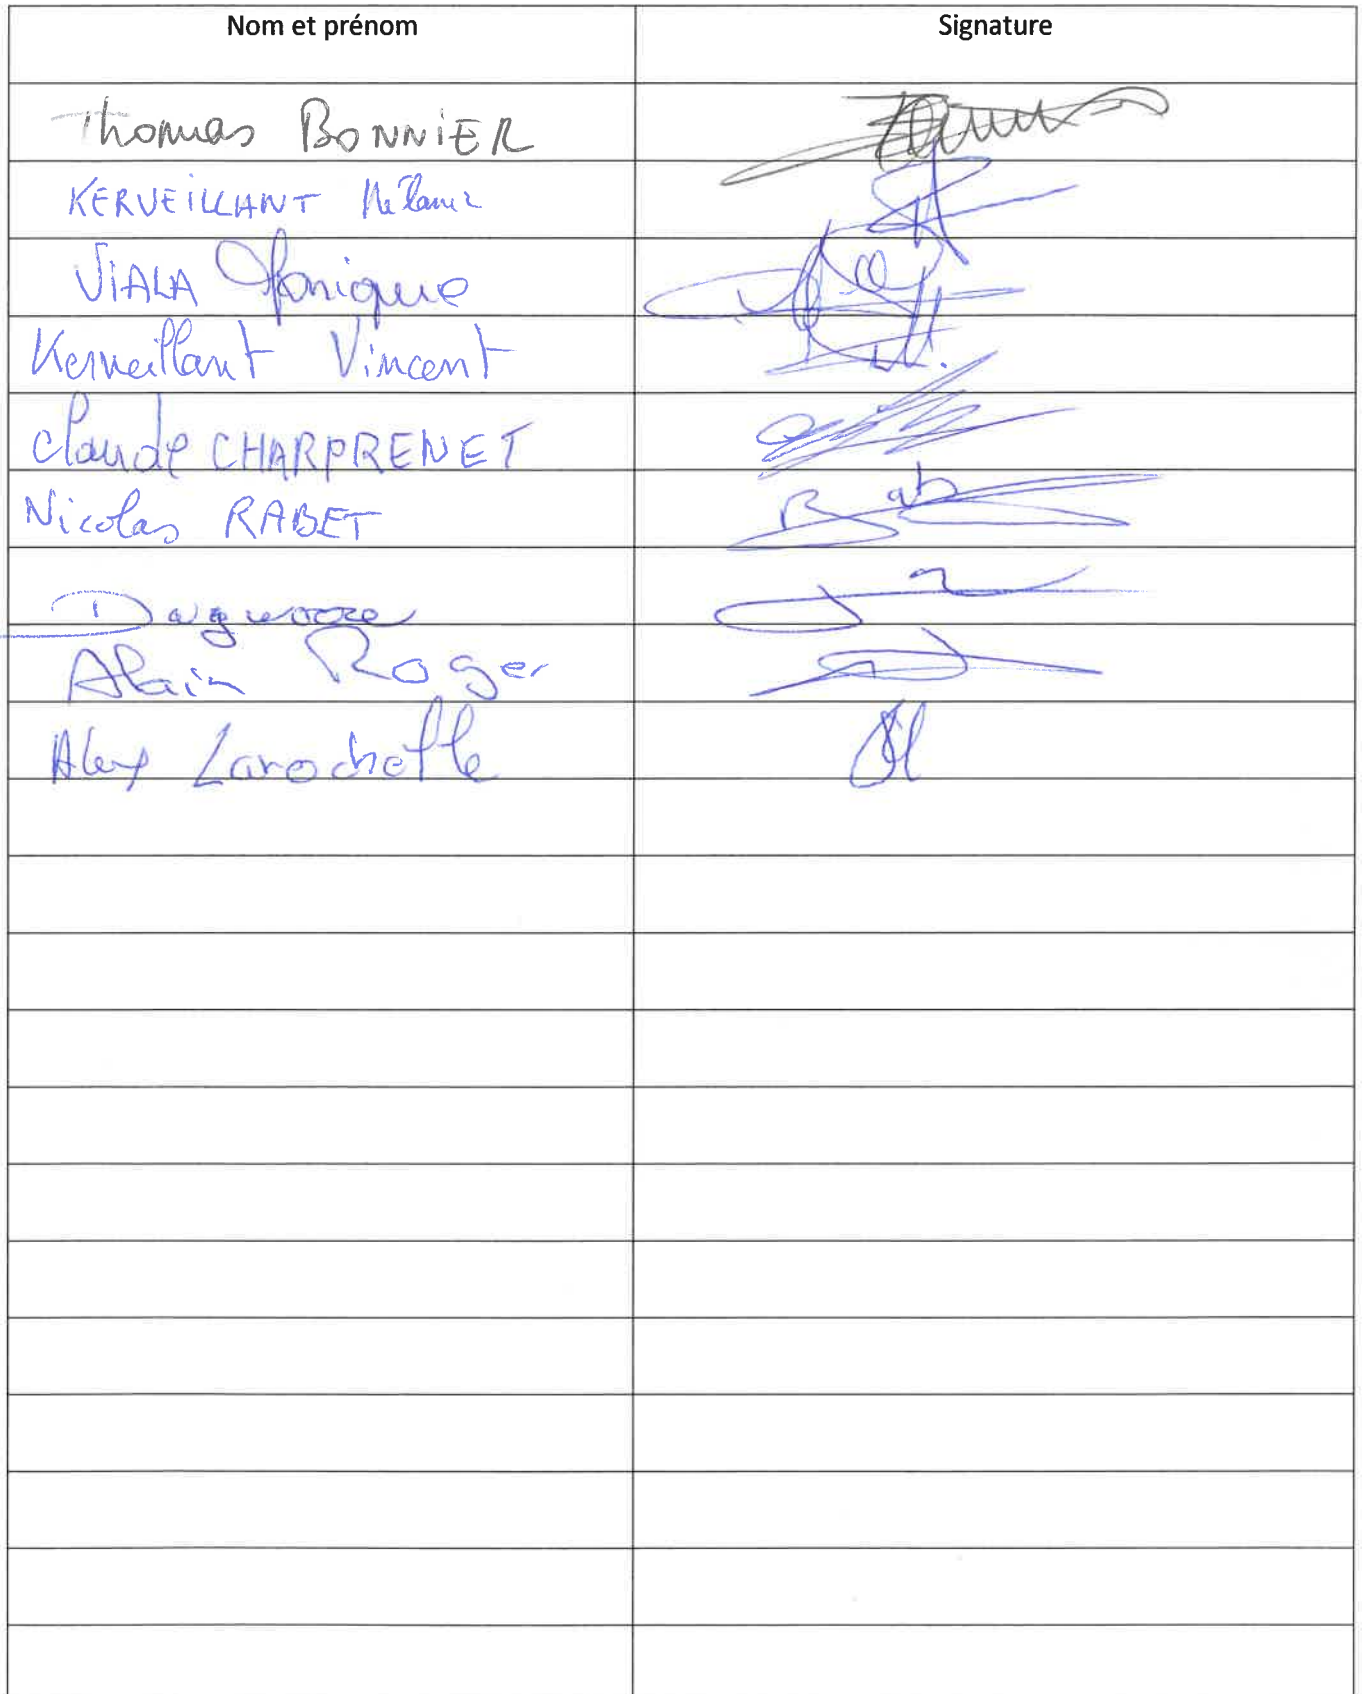 Nom et prénom Signature
Thomas BONNIER
KERVEILLANT Mélanie
VIALA Monique
Kerveillant Vincent
Claude CHARPRENET
Nicolas RABET Rab
Alain Roger
Alex Larochelle